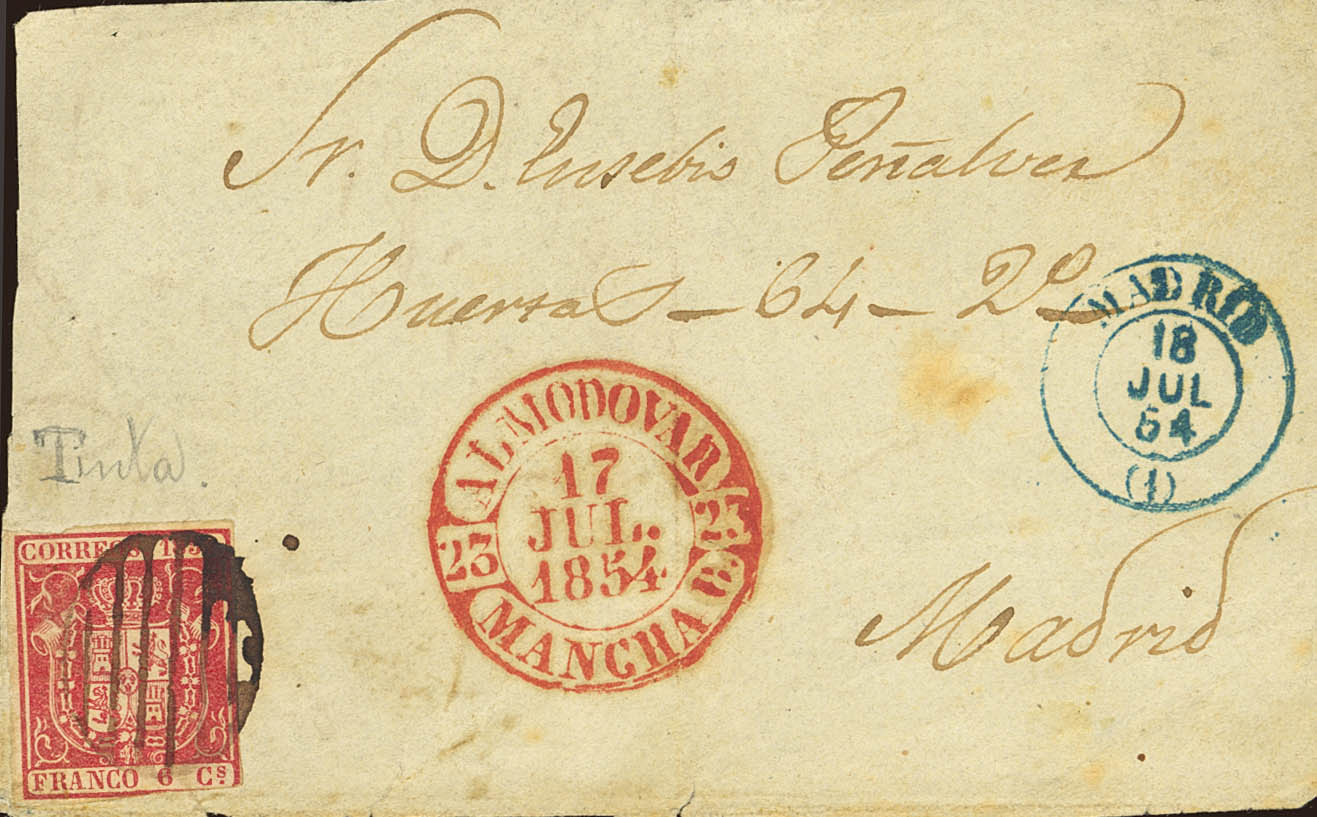 Sr. D. Eusebio Peñalver
Huertas - 64 - 2º
MADRID
18
JUL
54
(1)
ALMODOVAR
17
JUL.
1854
23
23
MANCHA B
Tinta.
Madrid
CORREOS 185
FRANCO 6 Cs